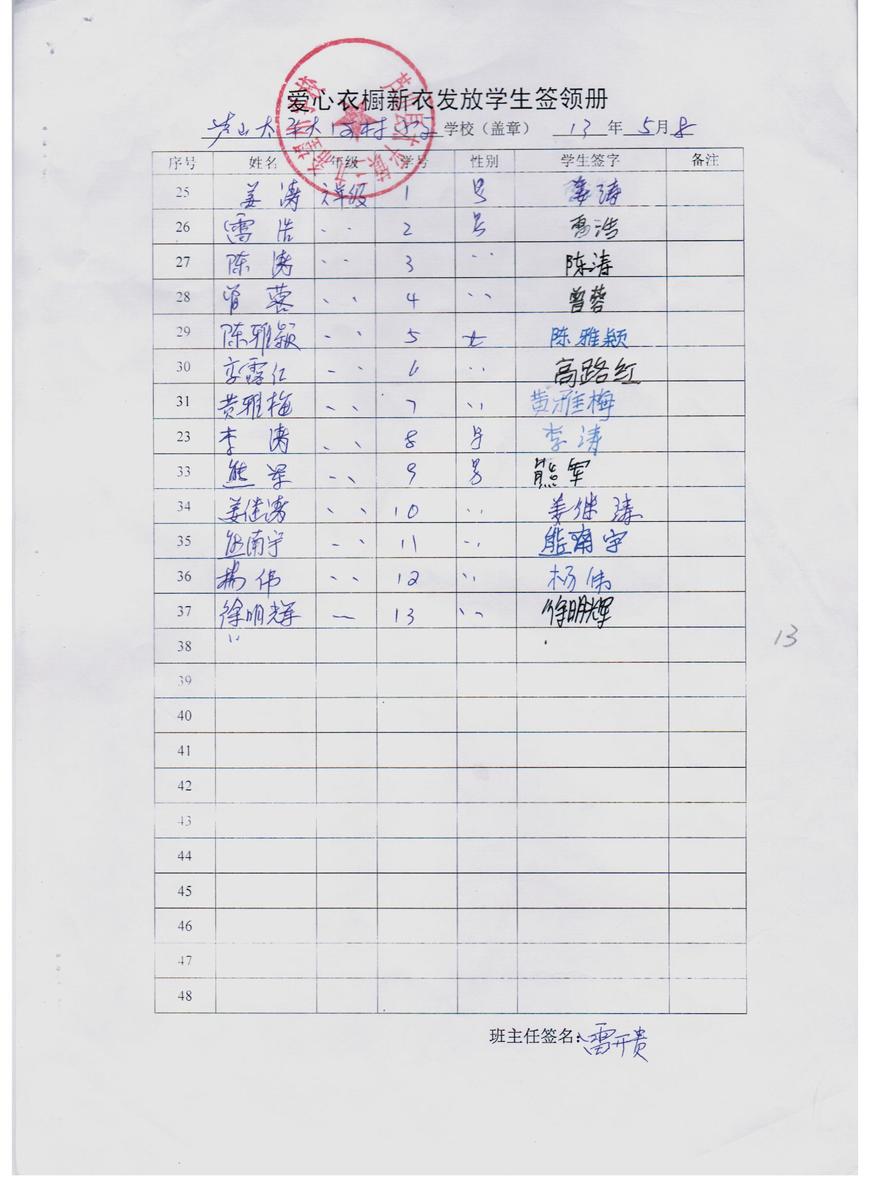 爱心衣橱新衣发放学生签领册
芦山太 村 学校（盖章） 13 年 5月 8
序号 姓名 年级 学号 性别 学生签字 备注
25 姜涛 年级 1 男 姜涛
26 雷浩 〃 2 男 雷浩
27 陈涛 〃 3 〃 陈涛
28 曾蓉 〃 4 〃 曾蓉
29 陈雅颖 〃 5 女 陈雅颖
30 6 〃 高路红
31 黄雅梅 〃 7 〃 黄雅梅
23 李涛 〃 8 男 李涛
33 熊军 〃 9 男 熊军
34 姜继涛 〃 10 〃 姜继涛
35 熊南宇 〃 11 〃 熊南宇
36 杨伟 〃 12 〃 杨伟
37 徐明辉 〃 13 〃 徐明辉
38 〃
13
39
40
41
42
43
44
45
46
47
48
班主任签名：雷开贵